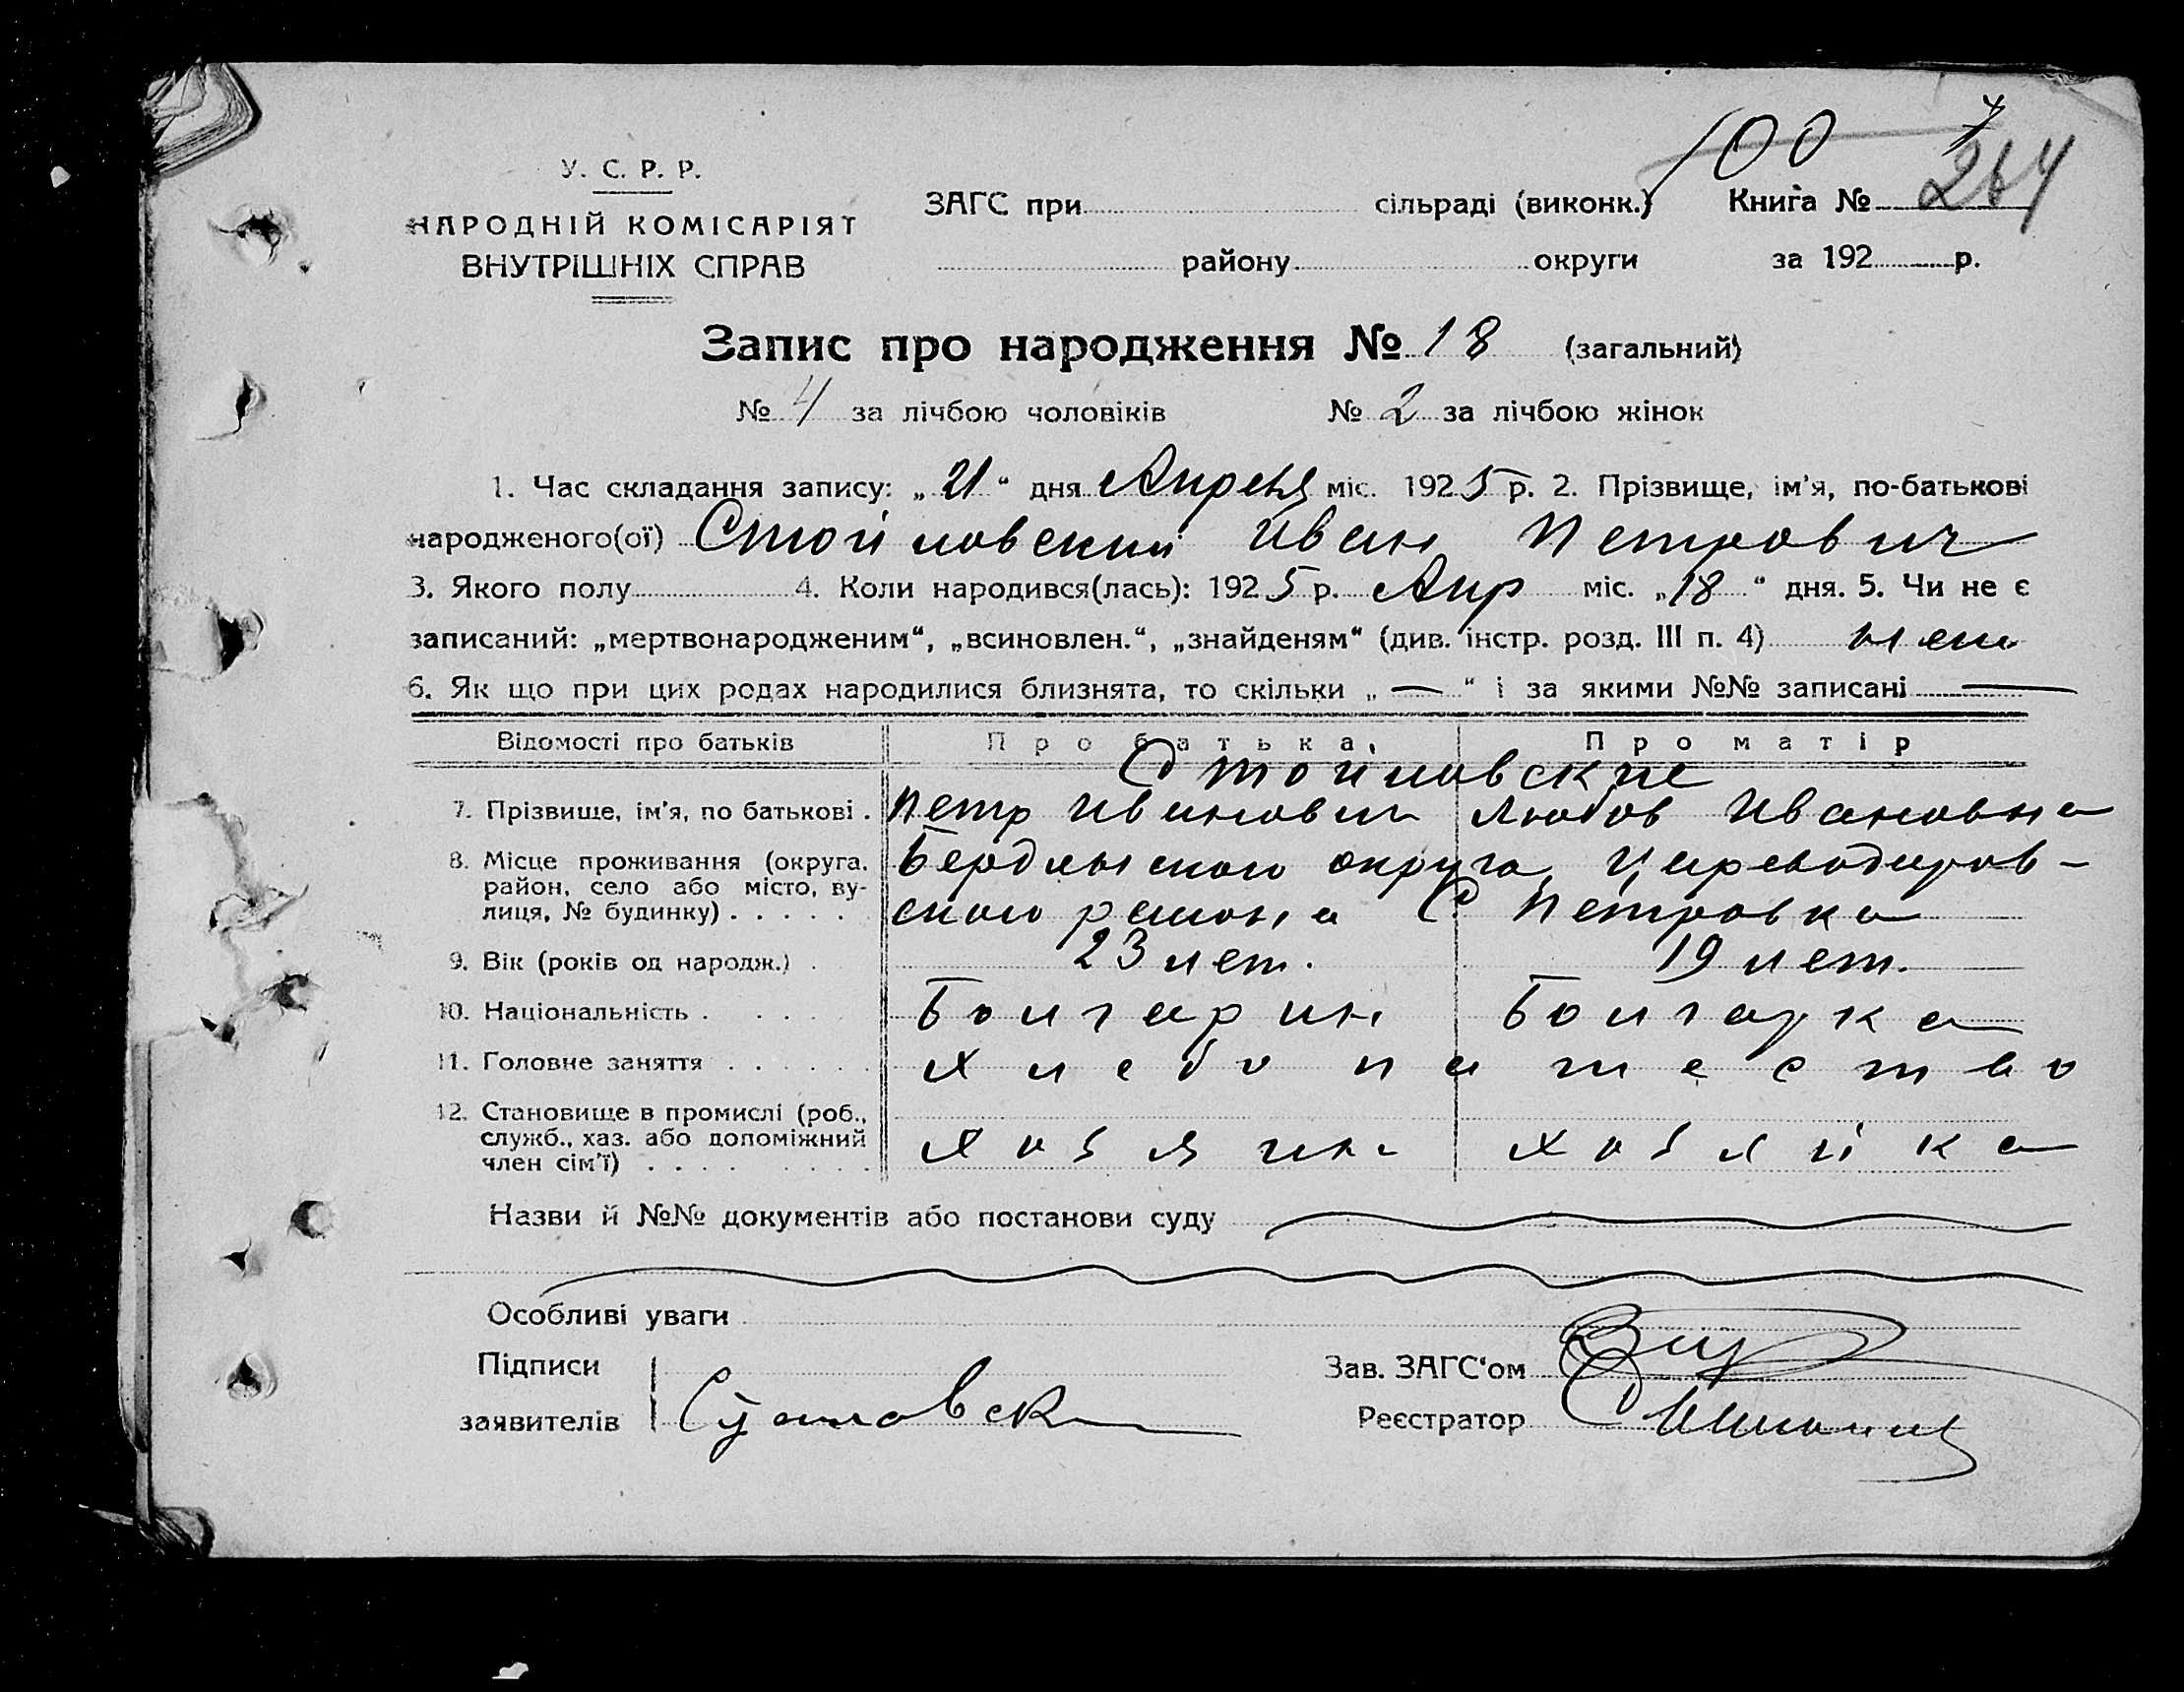 100
264
У. С. Р. Р.
НАРОДНІЙ КОМІСАРІЯТ
ВНУТРІШНІХ СПРАВ
ЗАГС при сільраді (виконк.) Книга №
району округи за 192 р.
Запис про народження № 18 (загальний)
№ 4 за лічбою чоловіків № 2 за лічбою жінок
1. Час складання запису: „21“ дня Апреля міс. 1925 р. 2. Прізвище, ім'я, по-батькові
народженого(ої) Стойловский Иван Петрович
3. Якого полу 4. Коли народився(лась): 1925 р. Апр міс. „18“ дня. 5. Чи не є
записаний: „мертвонародженим“, „всиновлен.“, „знайденям“ (див. інстр. розд. III п. 4) нет
6. Як що при цих родах народилися близнята, то скільки „—“ і за якими №№ записані —
Відомості про батьків Про батька, Про матір
Стойловские
7. Прізвище, ім'я, по батькові . Петр Иванович Любов Ивановна
8. Місце проживання (округа, район, село або місто, вулиця, № будинку) . . . . . Бердянского округа, Цареводаров-
ского района С Петровка
9. Вік (років од народж.) . 23 лет. 19 лет.
10. Національність . . . . . Болгарин Болгарка
11. Головне заняття . . . . . . Хлебопашество
12. Становище в промислі (роб.,
служб., хаз. або допоміжний
член сім'ї) . . . . . . . . Хозяин Хозяйка
Назви й №№ документів або постанови суду
Особливі уваги
Підписи
заявителів
Зав. ЗАГС'ом
Реєстратор